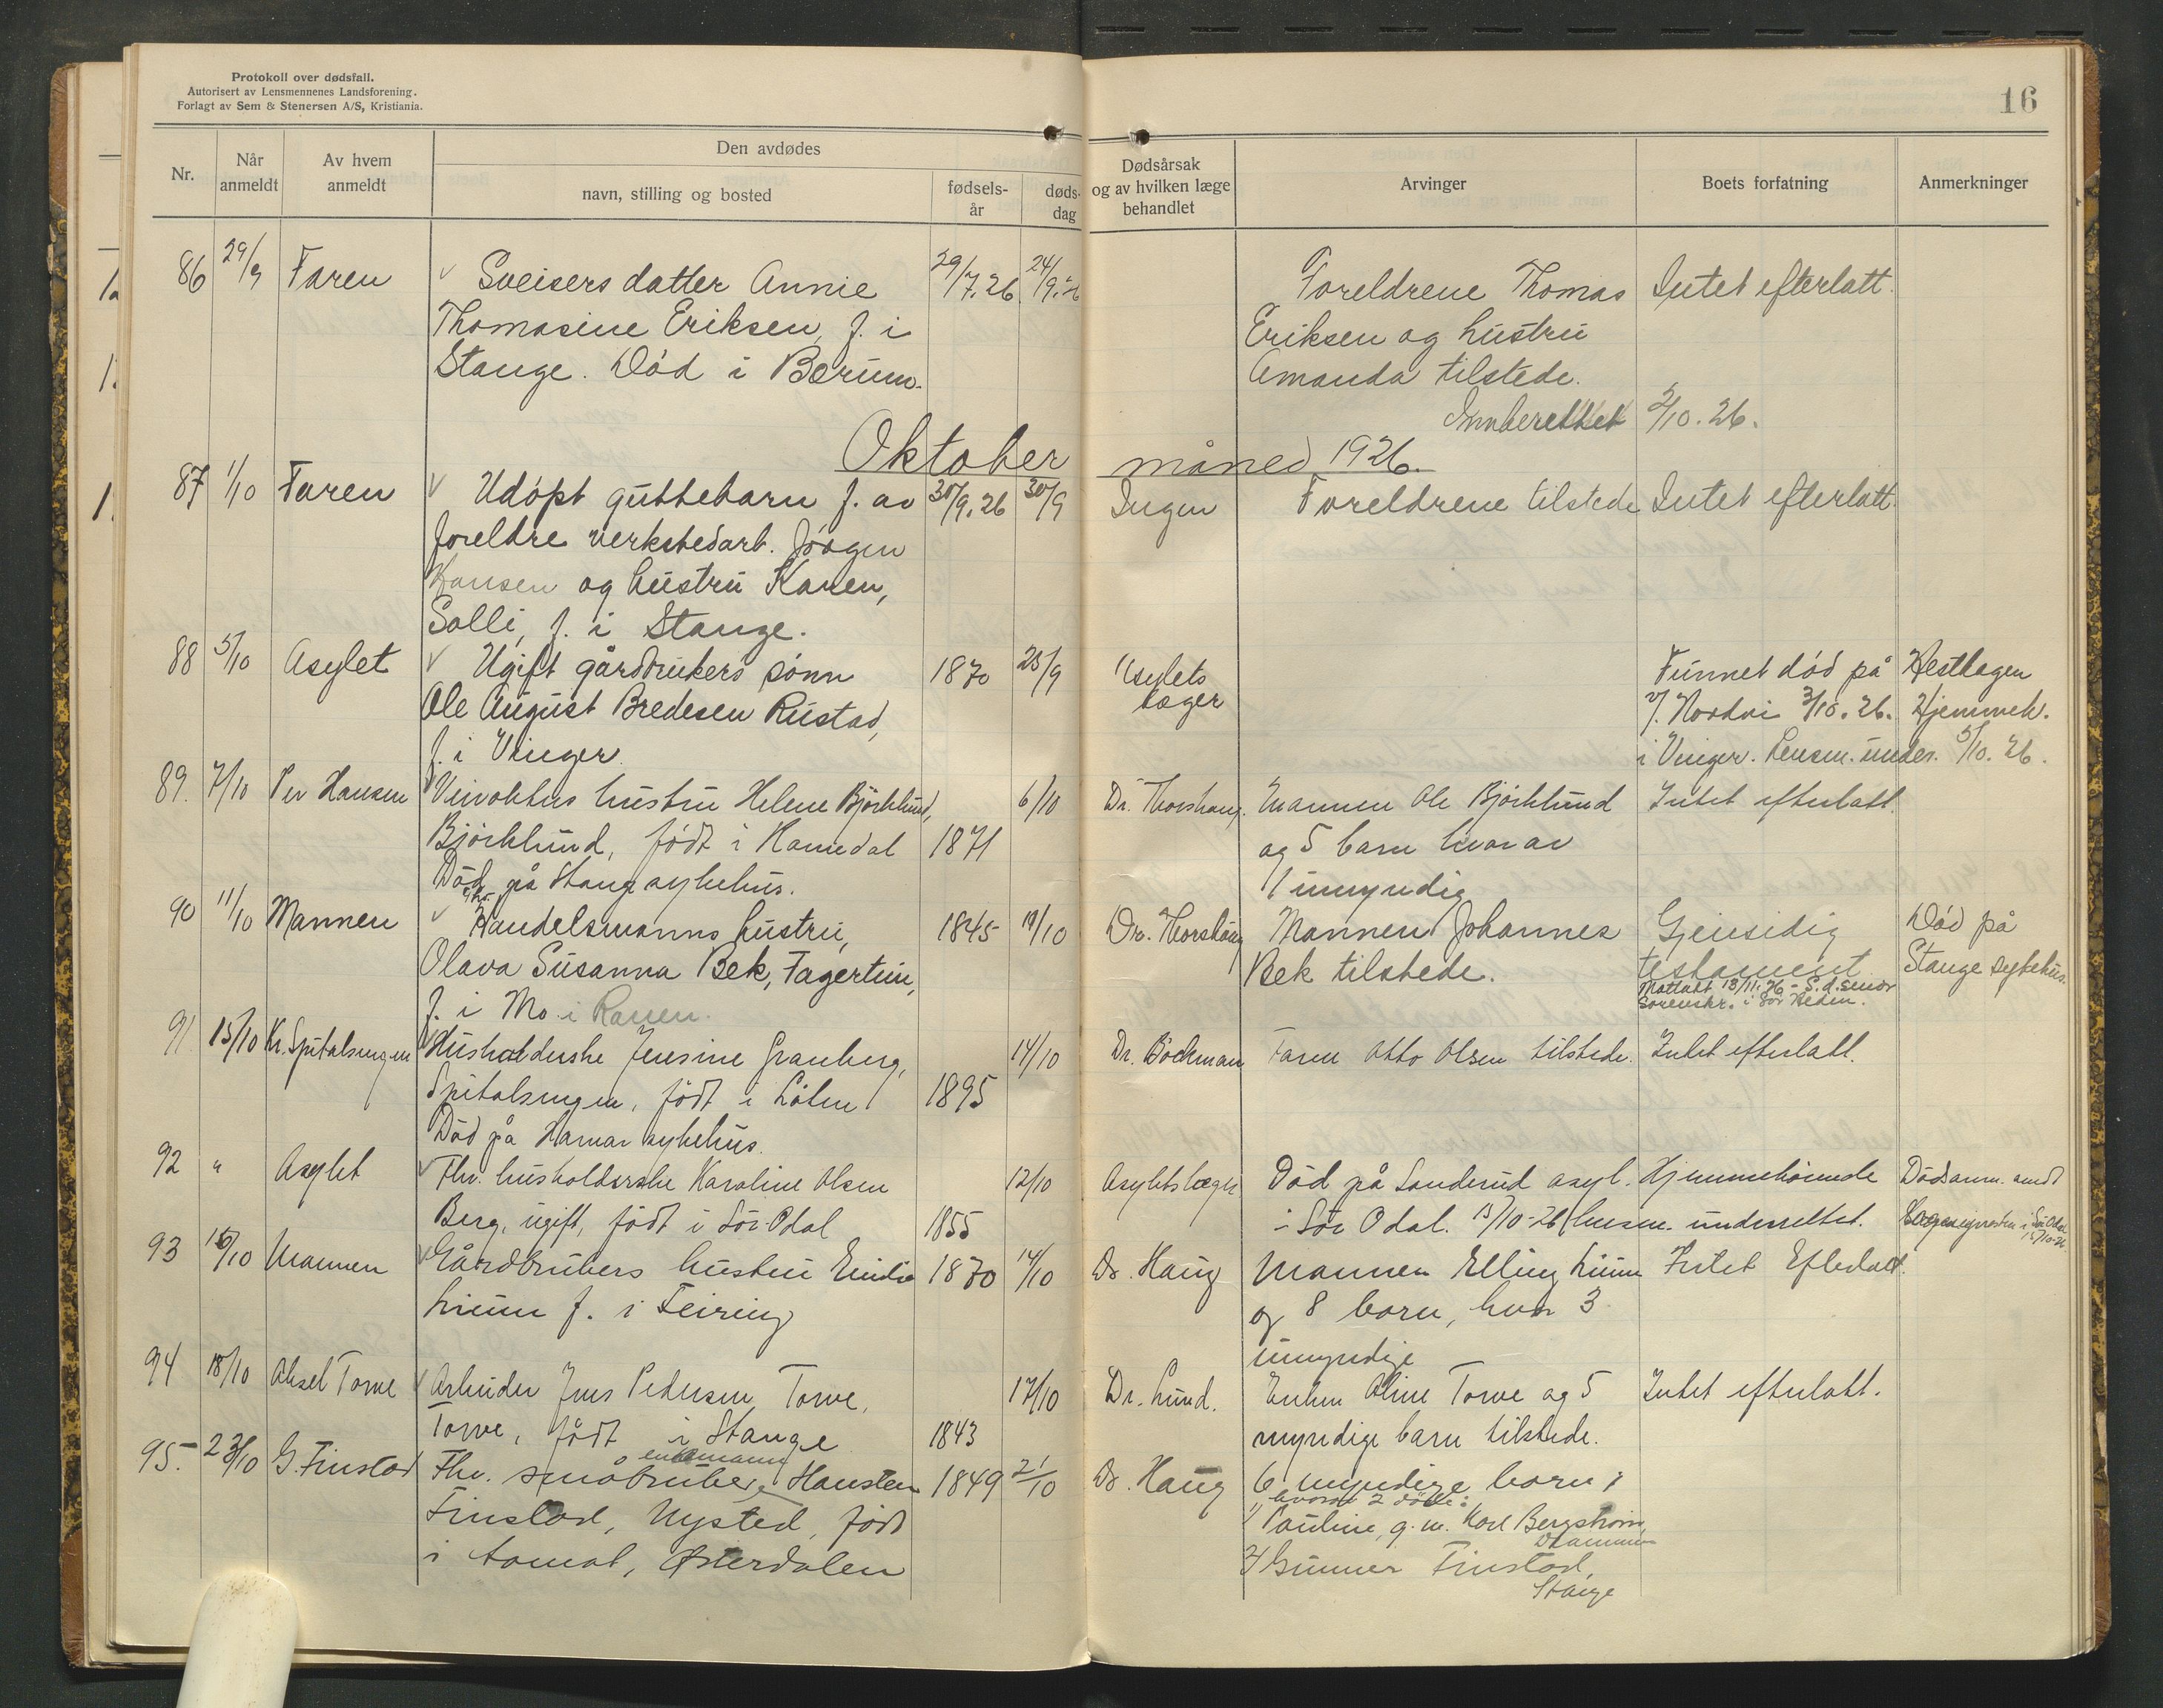 Protokoll over dødsfall.
Autorisert av Lensmennenes Landsforening.
Forlagt av Sem & Stenersen A/S, Kristiania.
16
Nr.
Når anmeldt
Av hvem anmeldt
Den avdødes
navn, stilling og bosted
fødsels-år
døds-dag
Dødsårsak og av hvilken læge behandlet
Arvinger
Boets forfatning
Anmerkninger
86 29/9 Faren Sveisers datter Annie 29/7.26 24/9.26 Foreldrene Thomas Intet efterlatt.
Thomasine Eriksen, f. i Eriksen og hustru
Stange. Død i Bærum. Amanda tilstede.
Innberettet 2/10.26.
Oktober måned 1926.
87 1/10 Faren Udøpt guttebarn f. av 30/9.26 30/9 Ingen Foreldrene tilstede Intet efterlatt.
foreldre verkstedarb. Jörgen
Hansen og hustru Karen,
Solli, f. i Stange.
88 5/10 Asylet Ugift gårdbrukers sønn 1870 23/9 Asylets Funnet død på Hesthagen
Ole August Bredesen Rustad, læger v/. Nordvi 3/10.26. Hjemmeh.
f. i Vinger. i Vinger. Lensm. under. 5/10.26.
89. 7/10 Per Hansen Veivokters hustru Helene Björklund, 6/10 Dr. Thorshaug. Mannen Ole Björklund Intet efterlatt.
Björklund, født i 1871 og 5 barn hvorav
Død på Stange sykehus. 1 umyndig
90 11/10 Mannen Handelsmanns hustru, 1845 10/10 Dr. Thorshaug Mannen Johannes Gjensidig Død på
Olava Susanna Bek, Fagertun, Bek tilstede. testament Stange sykehus.
Mottatt 13/11.26 - S.d. sendt
Sorenskr. i Sør Hedm.
f. i Mo i Ranen.
91 15/10 Kr. Spitalengen Husholderske Jensine Granberg, 14/10 Dr. Böckman Faren Otto Olsen tilstede. Intet efterlatt.
Spitalengen, født i Löten 1895
Död på Hamar sykehus.
92 " Asylet Fhv. husholderske Karoline Olsen 12/10 Asylets læger Död på Sanderud asyl. Hjemmehörende Dödsanm. sendt
Berg, ugift, født i Sör-Odal 1855 i Sör Odal. 15/10-26 lensm. underrettet. i Sör Odal 15/10-26
93 15/10 Mannen Gårdbrukers hustru Emilie 1870 14/10 Dr. Haug Mannen Elling Linn Intet Efterlatt.
Linn f. i Feiring og 8 born, hvor 3
umyndige
94 18/10 Aksel Torve Arbeider Jens Pedersen Torve, 17/10 Dr. Lund. Enken Oline Torve og 5 Intet efterlatt.
Torve, født i Stange 1843 myndige barn tilstede.
95. 23/10 G. Finstad Fhv. småbruker, enkemann Hansten 1849 21/10 Dr. Haug 6 myndige born,
hvorav 2 døde:
Finstad, Nysted, født 1/ Pauline, g. m. Karl Bergström,
Drammen
i Aamot, Østerdalen 2/ Gunner Finstad,
Stange